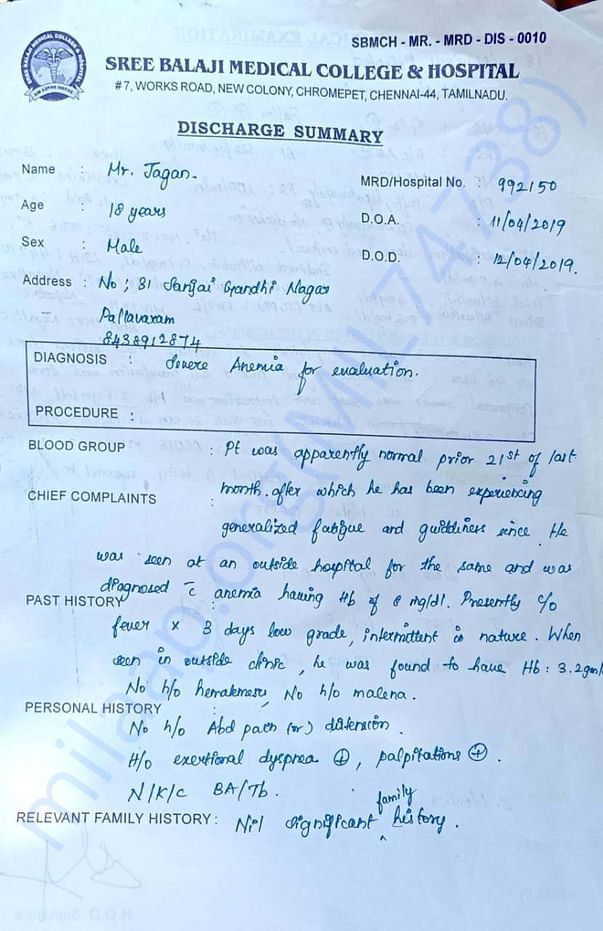 SBMCH - MR. - MRD - DIS - 0010
SREE BALAJI MEDICAL COLLEGE & HOSPITAL
#7, WORKS ROAD, NEW COLONY, CHROMEPET, CHENNAI-44, TAMILNADU.
DISCHARGE SUMMARY
Name : Mr. Jagan.
MRD/Hospital No. : 992150
Age : 18 years
D.O.A. : 11/04/2019
Sex : Male
D.O.D. : 12/04/2019.
Address : No ; 31 Sanjai Gandhi Nagar
Pallavaram
8438912874
DIAGNOSIS : Severe Anemia for evaluation.
PROCEDURE :
BLOOD GROUP : Pt was apparently normal prior 21st of last
CHIEF COMPLAINTS : month. after which he has been experiencing
generalized fatigue and guiddiness since. He
was seen at an outside hospital for the same and was
diagnosed c̄ anemia having Hb of 8 mg/dl. Presently c/o
PAST HISTORY
fever x 3 days low grade, intermittent in nature. When
seen in outside clinic, he was found to have Hb : 3.2
No h/o hematemesis, No h/o malena.
PERSONAL HISTORY :
No h/o Abd pain (or) distension.
H/o exertional dyspnea ⊕, palpitations ⊕.
N/K/c BA/Tb.
RELEVANT FAMILY HISTORY : Nil significant family history.
milaap.org(MIL74738)